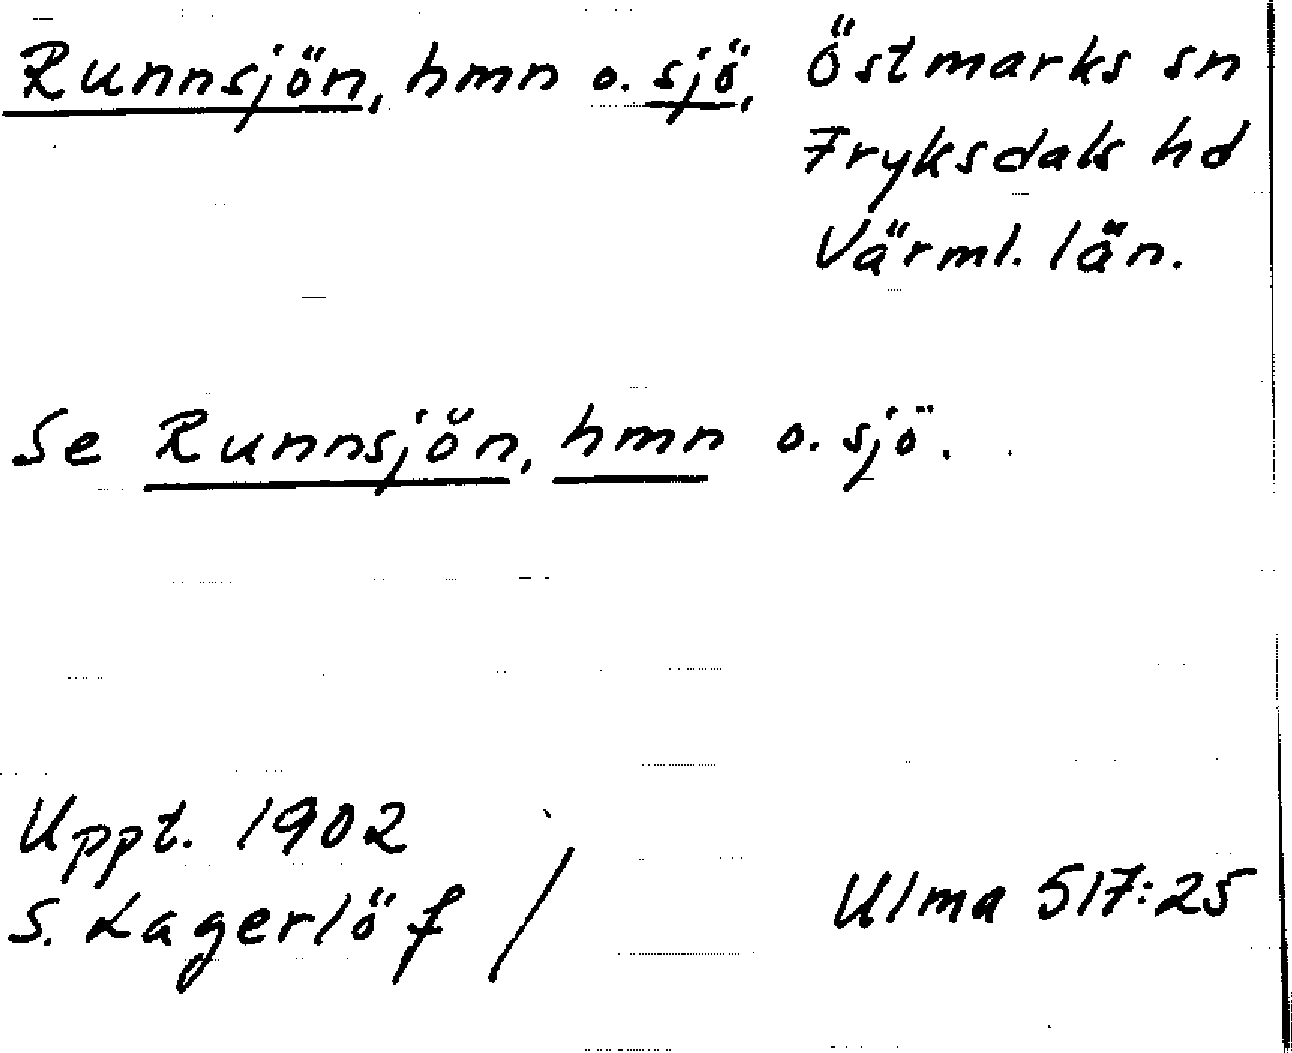 Runnsjön, hmn o. sjö, Östmarks sn
Fryksdals hd
Värml. län.
Se Runnsjön, hmn o. sjö.
Uppt. 1902
S. Lagerlöf /
Ulma 517:25